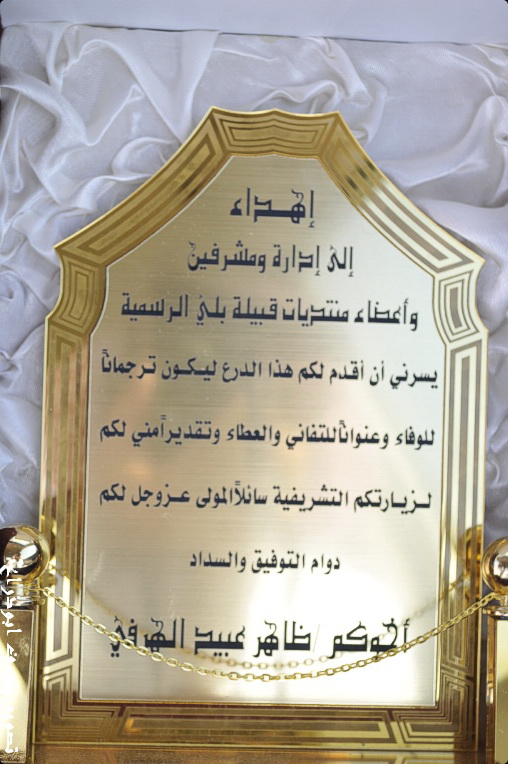 إهداء
إلى إدارة ومشرفين
وأعضاء منتديات قبيلة بلي الرسمية
يسرني أن أقدم لكم هذا الدرع ليكون ترجماناً
للوفاء وعنواناً للتفاني والعطاء وتقديراً مني لكم
لزيارتكم التشريفية سائلاً المولى عزوجل لكم
دوام التوفيق والسداد
أخوكم / ظاهر عبيد الهرفي